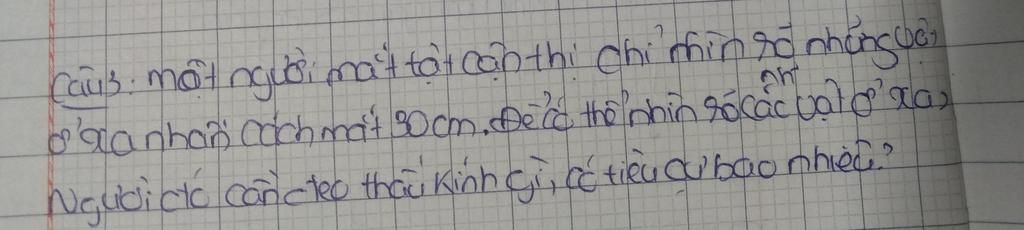 Câu3: Một người mắt tật cận thị chỉ nhìn rõ những vật
ở xa nhất cách mắt 90cm. Để có thể nhìn rõ các vật ở xa,
Người đó cần đeo thấu kính gì, có tiêu cự bao nhiêu?